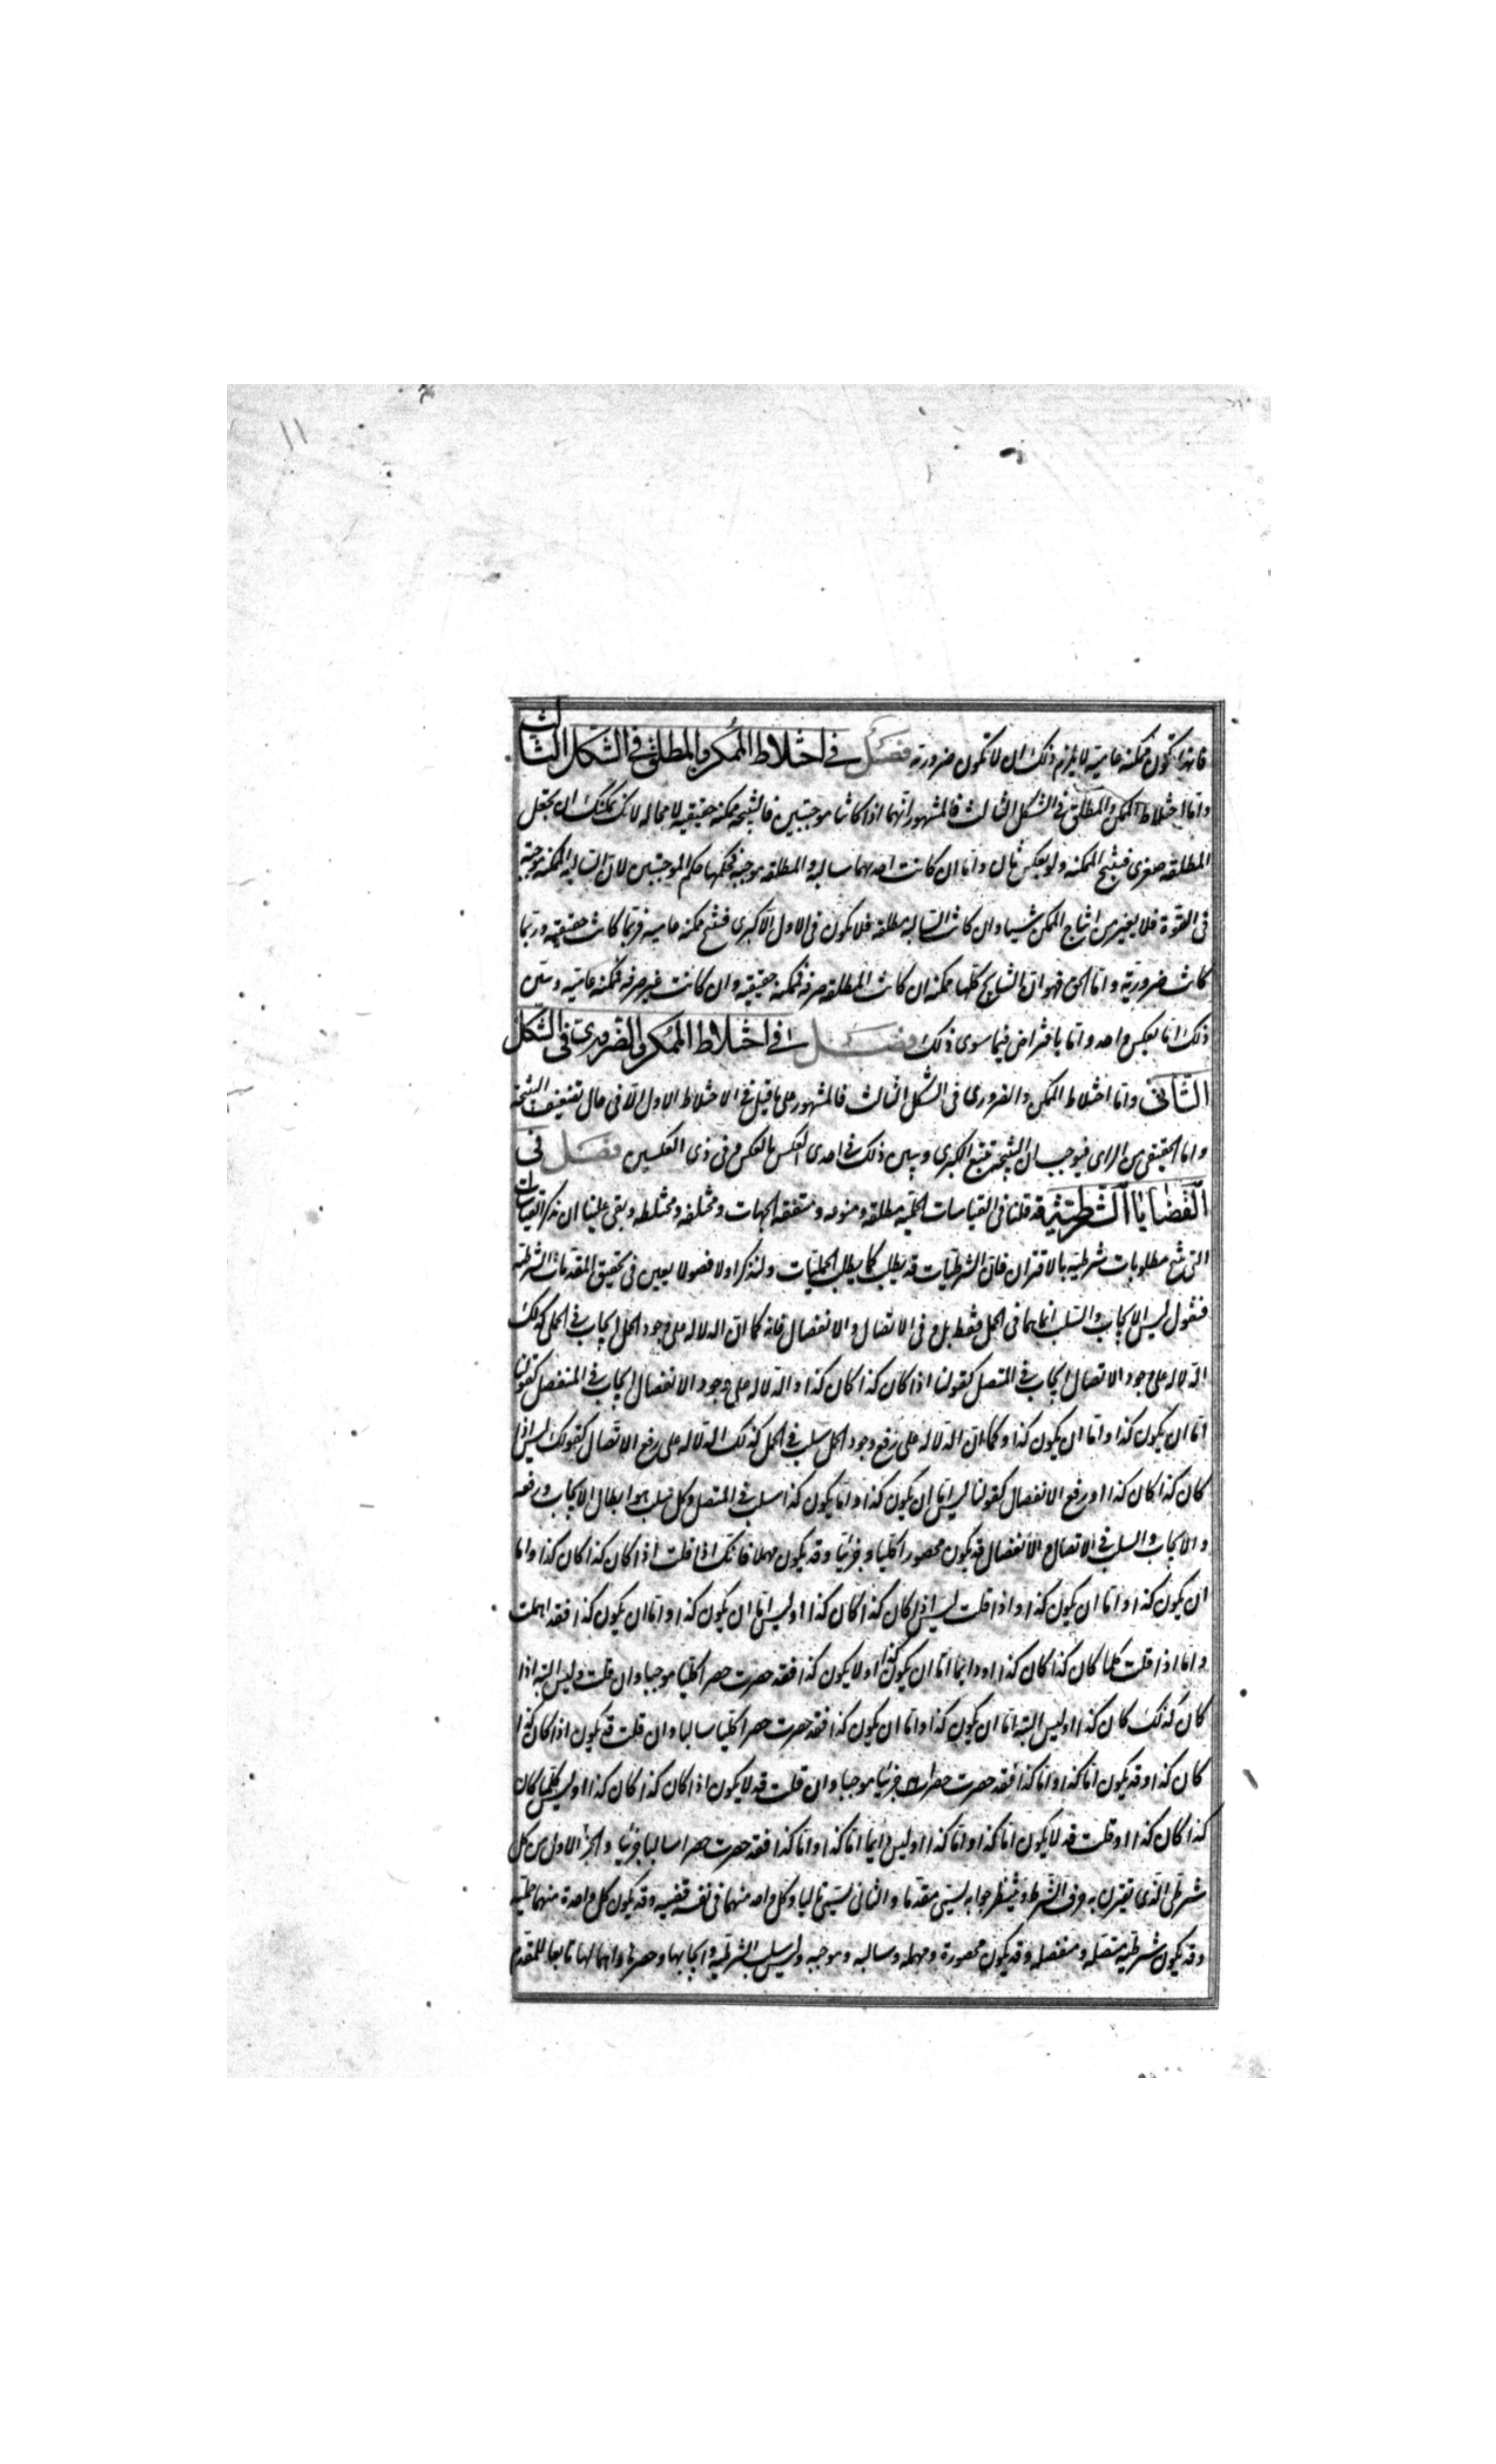 فانها تكون ممكنة عامية لا يلزم ذلك ان لا تكون ضرورية فصل في اختلاط الممكن والمطلق في الشكل الثالث
واما اختلاط الممكن والمطلق في الشكل الثالث فالمشهور انهما اذا كانتا موجبتين فالنتيجة ممكنة حقيقية لا محالة لانك يمكنك ان تجعل
المطلقة صغرى فينتج الممكنة ولو بعكس ثان واما ان كانت احديهما سالبة والمطلقة موجبة فحكمها حكم الموجبتين لان السالبة الممكنة موجبة
في القوة فلا يغير من انتاج الممكن شيئا وان كانت السالبة مطلقة فلا يكون في الاول الا كبرى فينتج ممكنة عامية فربما كانت حقيقية وربما
كانت ضرورية واما الحق فهو ان النتايج كلها ممكنة ان كانت المطلقة صرفة فممكنة حقيقية وان كانت غير صرفة فممكنة عامية وتبين
ذلك اما بعكس واحد واما بافتراض فيما سوى ذلك فصل في اختلاط الممكن والضروري في الشكل
الثاني واما اختلاط الممكن والضروري في الشكل الثالث فالمشهور على ما قيل في الاختلاط الاول الا في حال تضعيف النتيجة
واما الحقيقي من الراى فيوجب ان النتيجة تتبع الكبرى وتبين ذلك في احدى العكس بالعكس وفي ذى العكسين فصل في
القضايا الشرطية قد قلنا في القياسات الحملية مطلقة ومنوعة ومتفقة الجهات ومختلفة ومختلطة وبقى علينا ان نذكر القياسات
التى تنتج مطلوبات شرطية بالاقتران فان الشرطيات قد يطلب كما يطلب الحمليات ولنذكر اولا فصولا يعين في تحقيق المقدمات الشرطية
فنقول ليس الايجاب والسلب انما هما في الحمل فقط بل وفى الاتصال والانفصال فانه كما ان الدلالة على وجود الحمل ايجاب في الحمل كذلك
الدلالة على وجود الاتصال ايجاب في المتصل كقولنا اذا كان كذا كان كذا والدلالة على وجود الانفصال ايجاب في المنفصل كقولنا
اما ان يكون كذا واما ان يكون كذا وكما ان الدلالة على رفع وجود الحمل سلب في الحمل كذلك الدلالة على رفع الاتصال كقولك ليس اذا
كان كذا كان كذا او رفع الانفصال كقولنا ليس اما ان يكون كذا واما يكون كذا سلب في المتصل وكل سلب هو ابطال الايجاب ورفعه
والايجاب والسلب في الاتصال والانفصال قد يكون محصورا كليا وجزئيا وقد يكون مهملا فانك اذا قلت اذا كان كذا كان كذا واما
ان يكون كذا واما ان يكون كذا واذا قلت ليس اذا كان كذا كان كذا او ليس اما ان يكون كذا واما ان يكون كذا فقد اهملت
واما اذا قلت كلما كان كذا كان كذا او دايما اما ان يكون كذا او لا يكون كذا فقد حصرت حصرا كليا موجبا وان قلت وليس البتة اذا
كان كذلك كان كذا او ليس البتة اما ان يكون كذا واما ان يكون كذا فقد حصرت حصرا كليا سالبا وان قلت قد يكون اذا كان كذا
كان كذا وقد يكون اما كذا واما كذا فقد حصرت حصرا جزئيا موجبا وان قلت قد لا يكون اذا كان كذا كان كذا او ليس كلما كان
كذا كان كذا او قلت قد لا يكون اما كذا واما كذا او ليس دايما اما كذا واما كذا فقد حصرت حصرا سالبا جزئيا والجزء الاول من كل
شرطى الذى تقترن به حرف الشرط وينتظر جوابه ليسمى مقدما والثانى ليسمى تاليا وكل واحد منهما في نفسه قضية وقد يكون كل واحدة منهما حملية
وقد يكون شرطية متصلة ومنفصلة وقد يكون محصورة ومهملة وسالبة وموجبة وليس سلب الشرطية وايجابها وحصرها واهمالها تابعا للمقدم